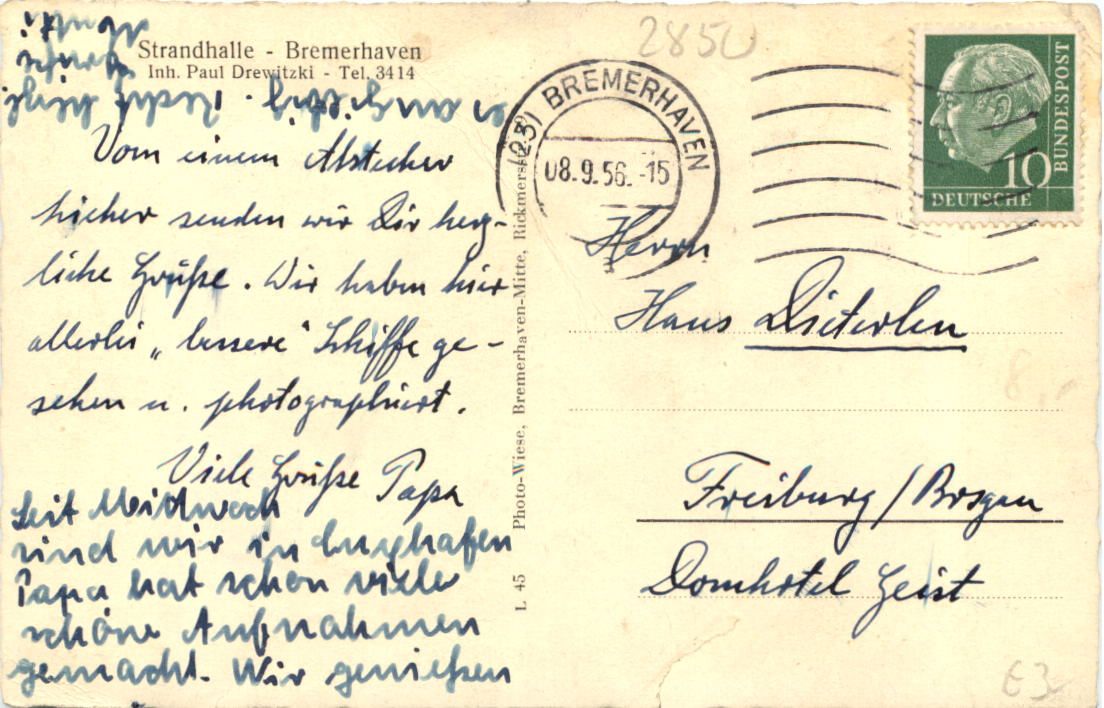 Strandhalle - Bremerhaven
Inh. Paul Drewitzki - Tel. 3414
Vom einem Abstecher
hieher senden wir Dir herz-
liche Grüße. Wir haben hier
allerlei „bessere“ Schiffe ge-
sehen u. photographiert.
Viele Grüße Papa
Seit Mittwoch
sind wir in Cuxhafen
Papa hat schon viele
schöne Aufnahmen
gemacht. Wir genießen
L 45 Photo-Wiese, Bremerhaven-Mitte, Rickmersstr.
2850
(23) BREMERHAVEN
08.9.56.-15
DEUTSCHE BUNDESPOST
10
Herrn
Hans Dieterlen
Freiburg/Brsgau
Domhotel Geist
8.-
€3